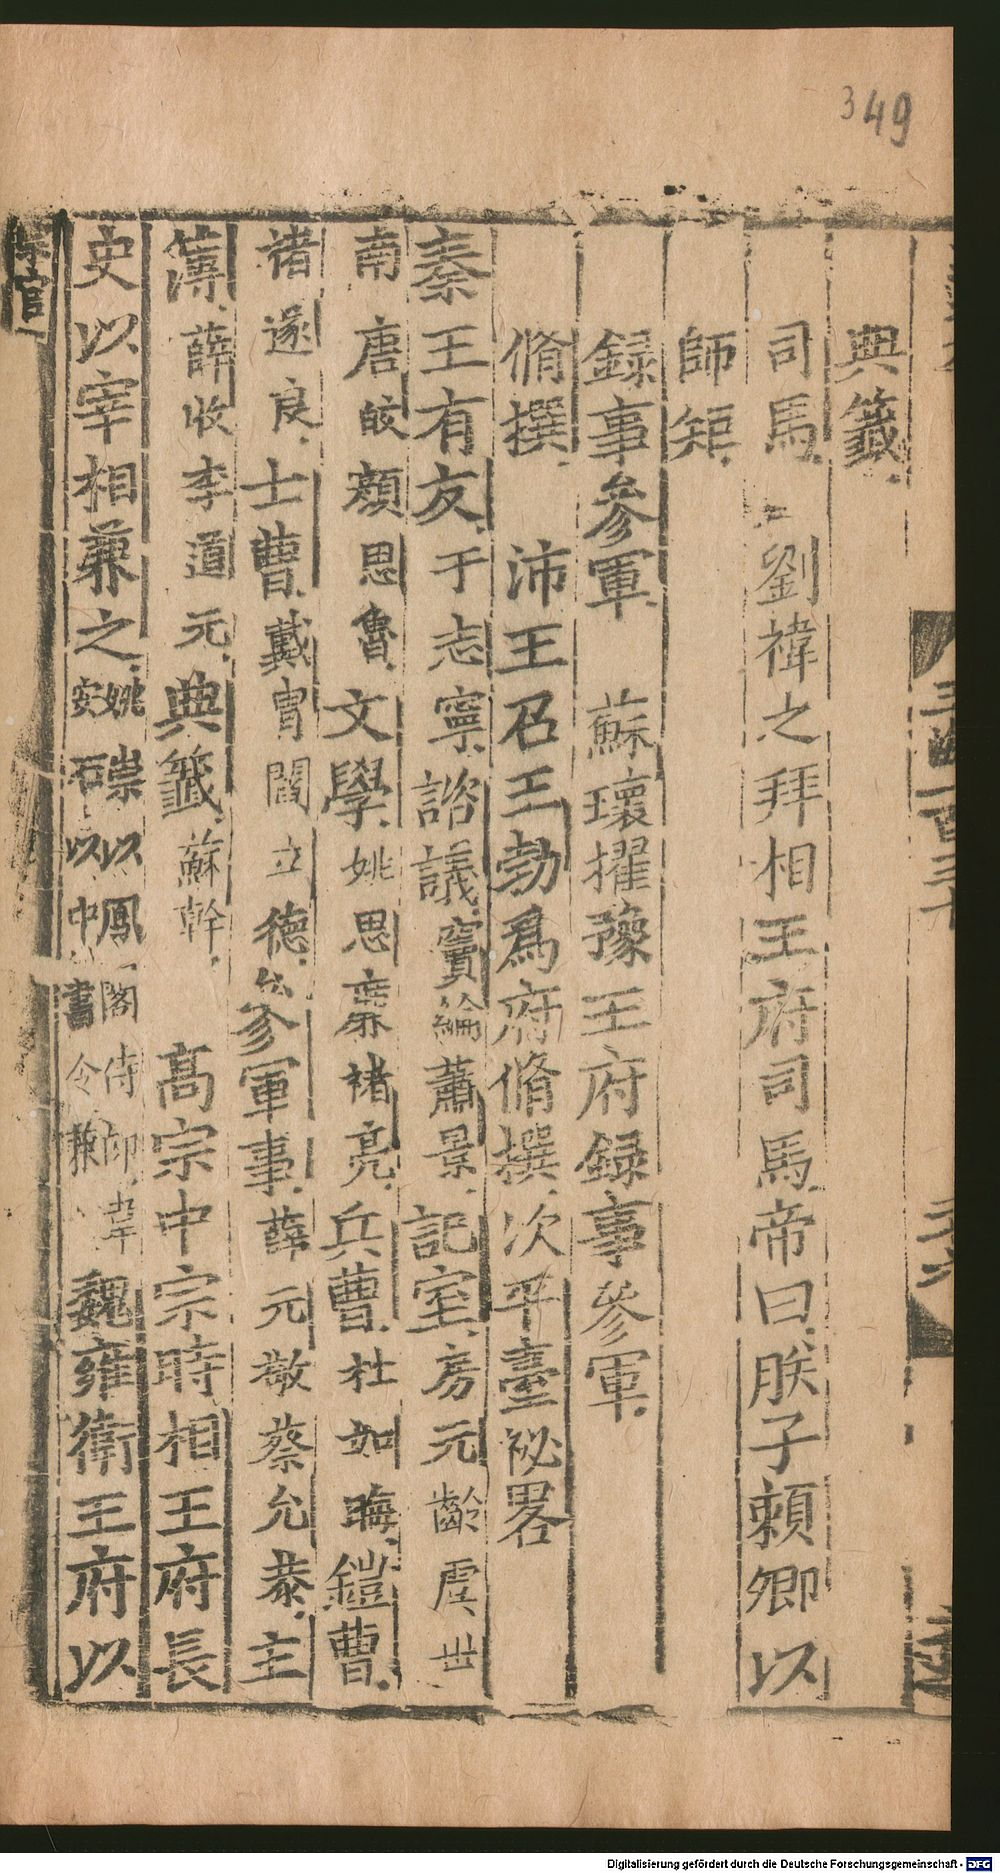 349
典籤
司馬 劉禕之拜相王府司馬帝曰朕子頼卿以
師矩
録事參軍 蘇瓌擢豫王府録事參軍
脩撰 沛王召王勃爲府脩撰次平臺祕畧
秦王有友于志寧諮議竇綸蕭景記室房元齡虞世
南唐皎顔思魯文學姚思亷褚亮兵曹杜如晦鎧曹
褚遂良士曹戴胄閻立德參軍事薛元敬蔡允恭主
簿薛收李道元典籤蘇幹 高宗中宗時相王府長
史以宰相兼之姚崇以鳳閣侍郎韋
安石以中書令兼 魏雍衛王府以
宗官
Digitalisierung gefördert durch die Deutsche Forschungsgemeinschaft - DFG